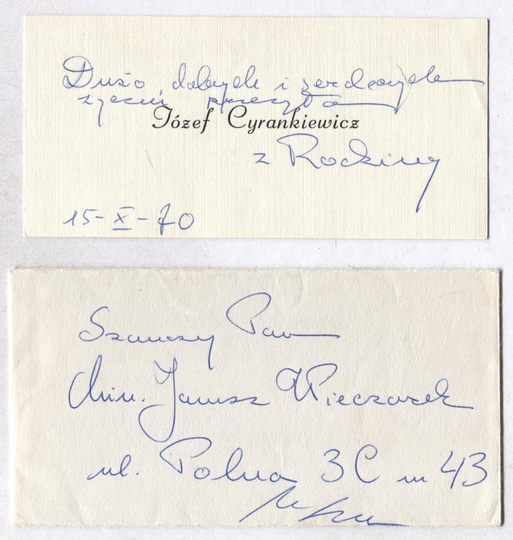 Dużo dobrych i serdecznych
życzeń przesyła
Józef Cyrankiewicz
z Rodziną
15-X-70
Szanowny Pan
Min. Janusz Wieczorek
ul. Polna 3C m 43